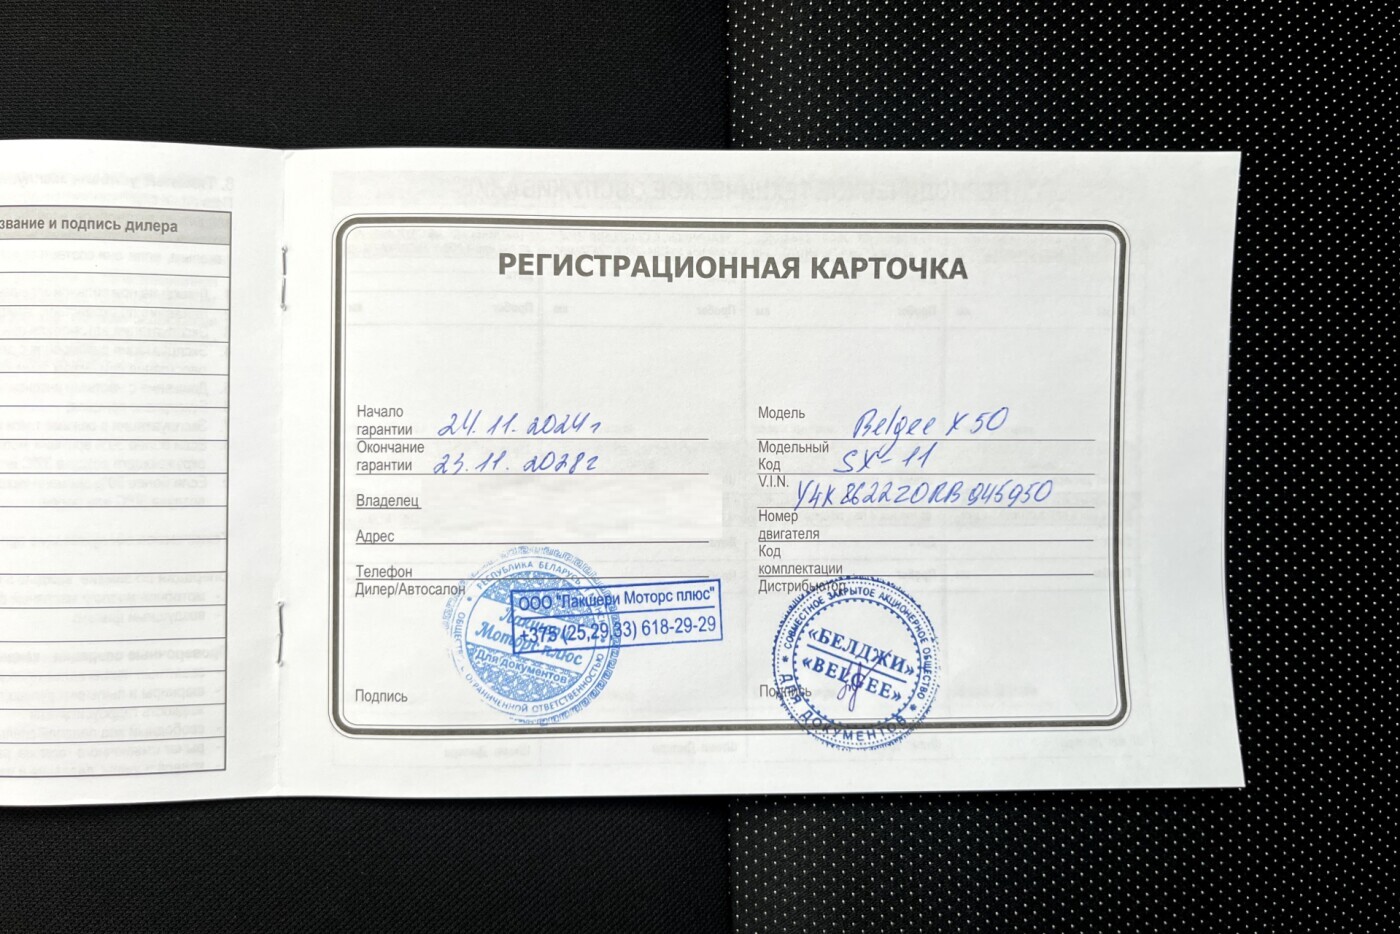 звание и подпись дилера
РЕГИСТРАЦИОННАЯ КАРТОЧКА
Начало
гарантии 24.11.2024г
Окончание
гарантии 23.11.2028г
Владелец
Адрес
Телефон
Дилер/Автосалон
РЕСПУБЛИКА БЕЛАРУСЬ
ООО "Лакшери Моторс плюс"
+375 (25,29,33) 618-29-29
Моторс плюс
Для документов
ОГРАНИЧЕННОЙ ОТВЕТСТВЕННОСТЬЮ
Подпись
Модель Belgee X50
Модельный
Код SX-11
V.I.N. Y4K8622Z0RB046950
Номер
двигателя
Код
комплектации
Дистрибьютор
СОВМЕСТНОЕ ЗАКРЫТОЕ АКЦИОНЕРНОЕ ОБЩЕСТВО
«БЕЛДЖИ»
«BELGEE»
ДЛЯ ДОКУМЕНТОВ
Подпись